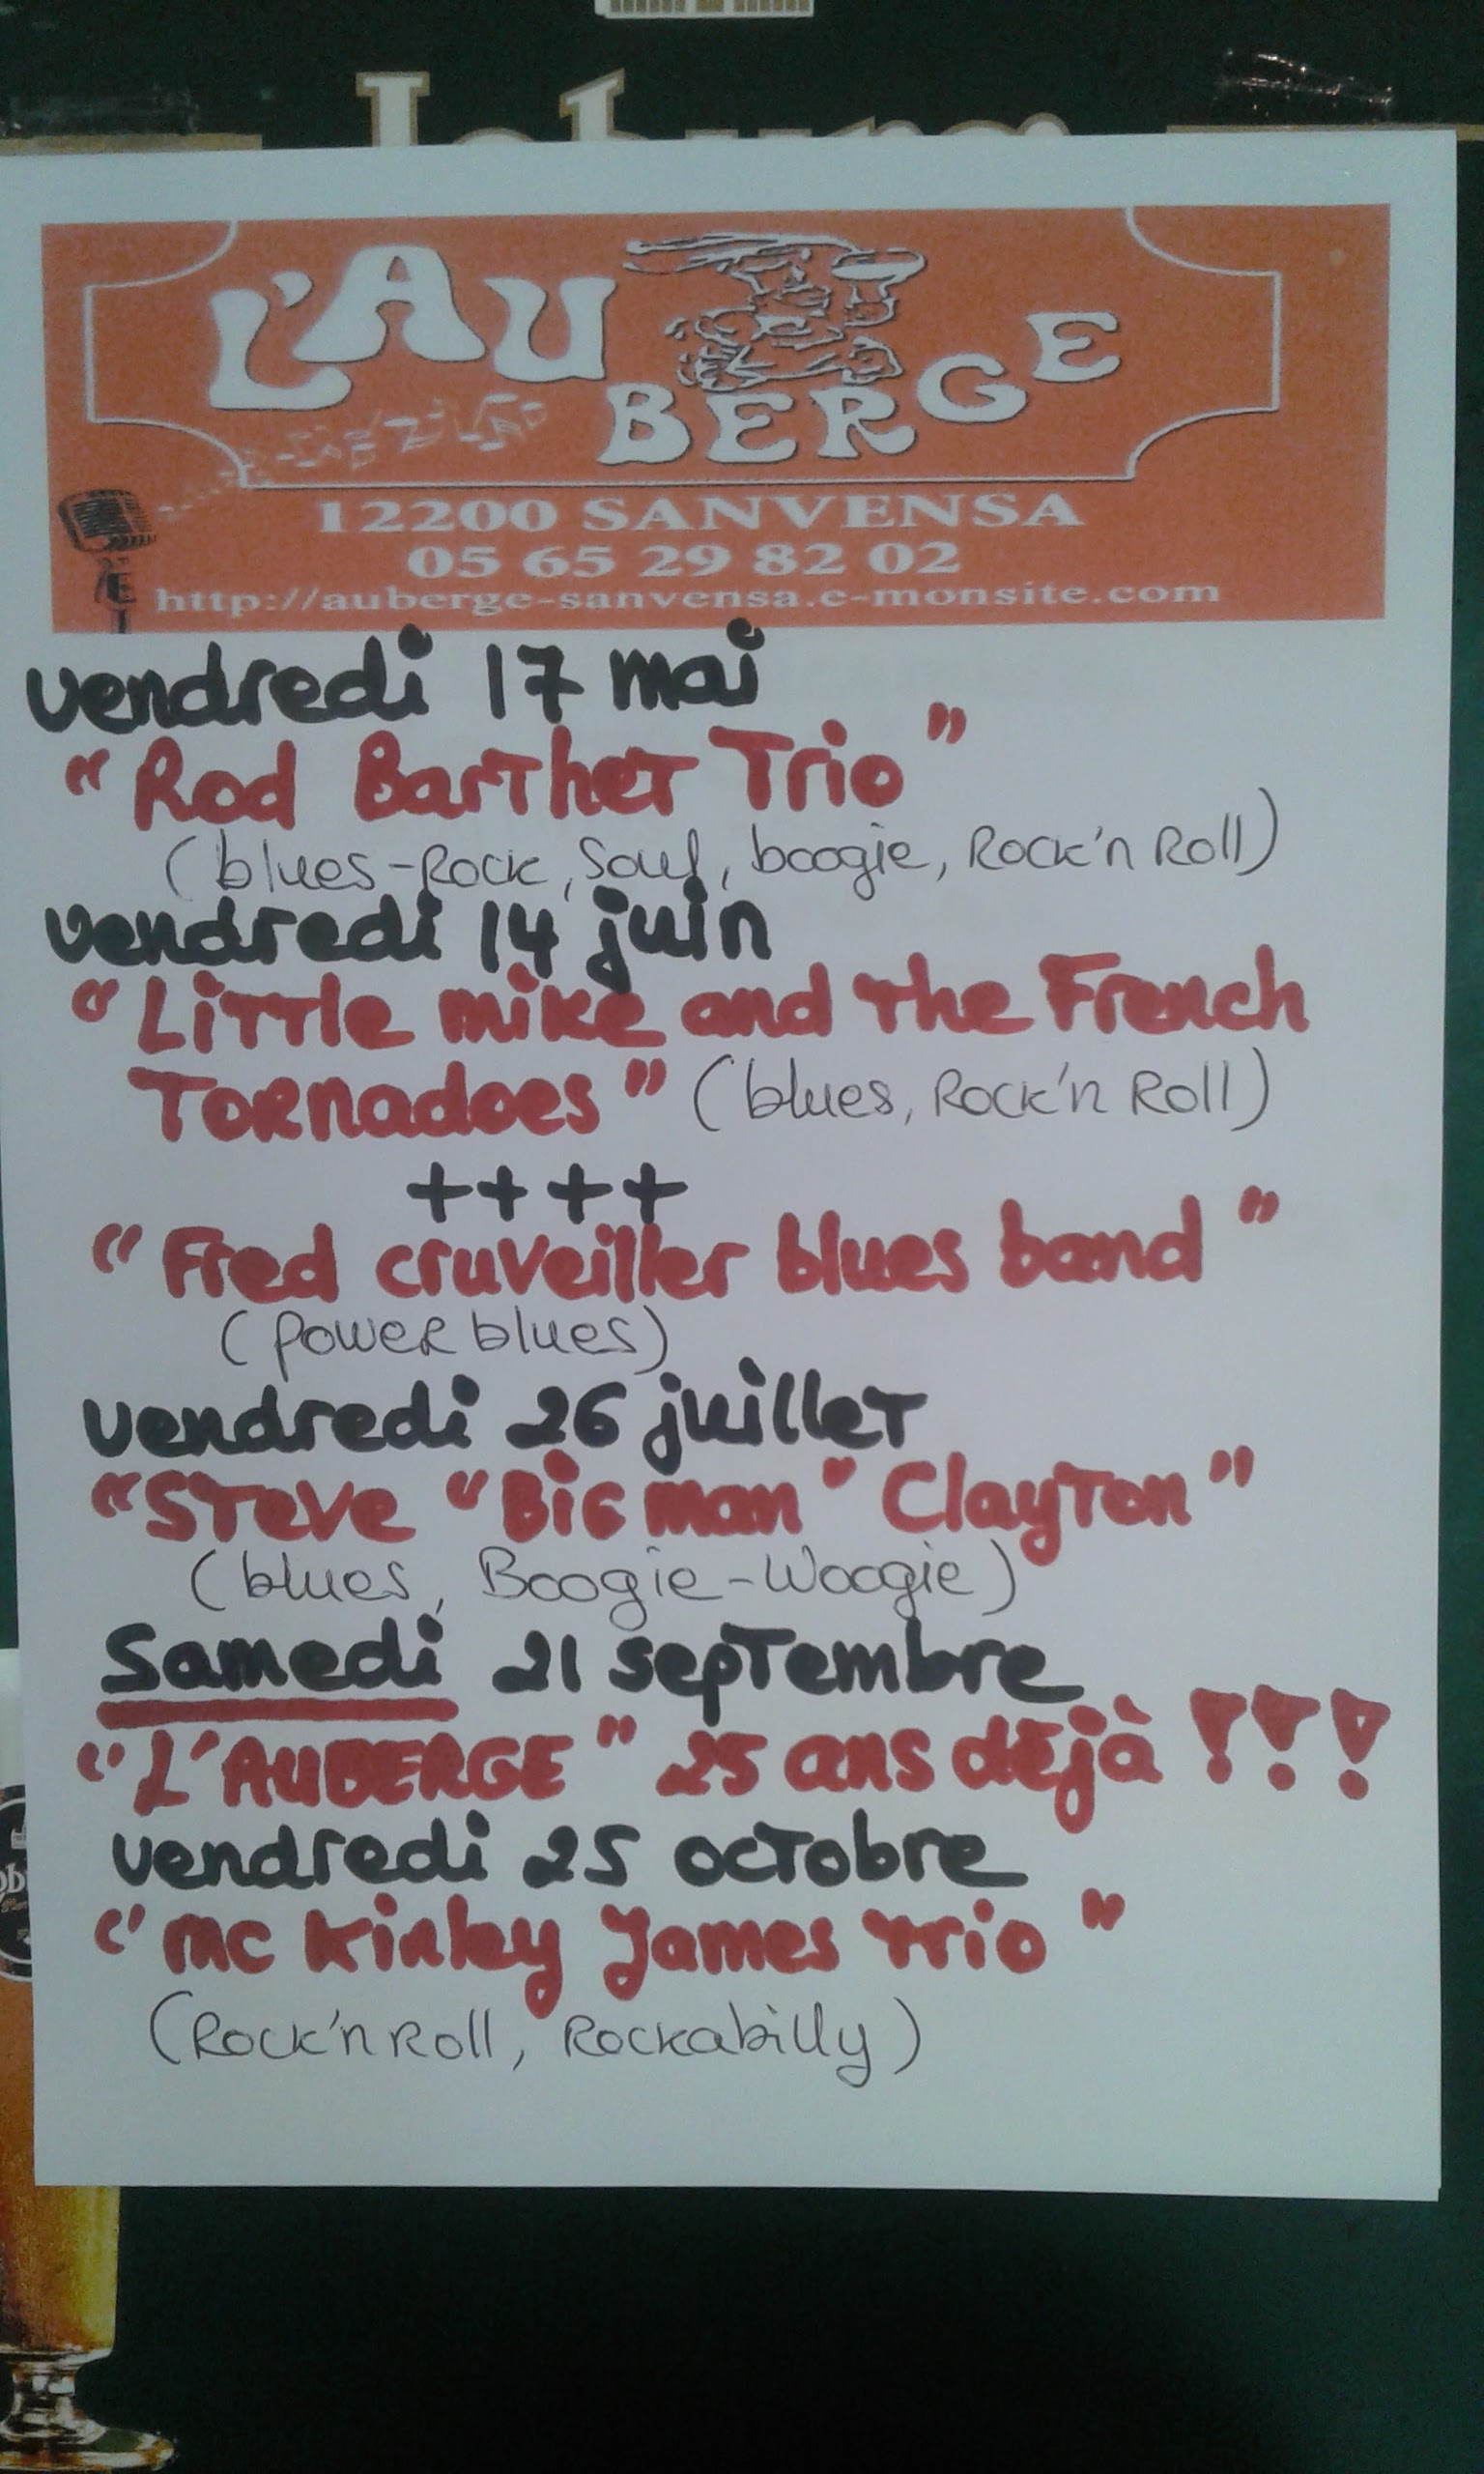 L'AUBERGE
12200 SANVENSA
05 65 29 82 02
http://auberge-sanvensa.e-monsite.com
vendredi 17 mai
"Rod Barther Trio"
(blues-Rock, Soul, boogie, Rock'n Roll)
vendredi 14 juin
"Little mike and the French
Tornadoes" (blues, Rock'n Roll)
++++
"Fred cruveiller blues band"
(power blues)
vendredi 26 juillet
"Steve "Big man" Clayton"
(blues, Boogie-Woogie)
Samedi 21 septembre
"L'AUBERGE" 25 ans déjà !!!
vendredi 25 octobre
"mc Kinley James trio"
(Rock'n Roll, Rockabilly)